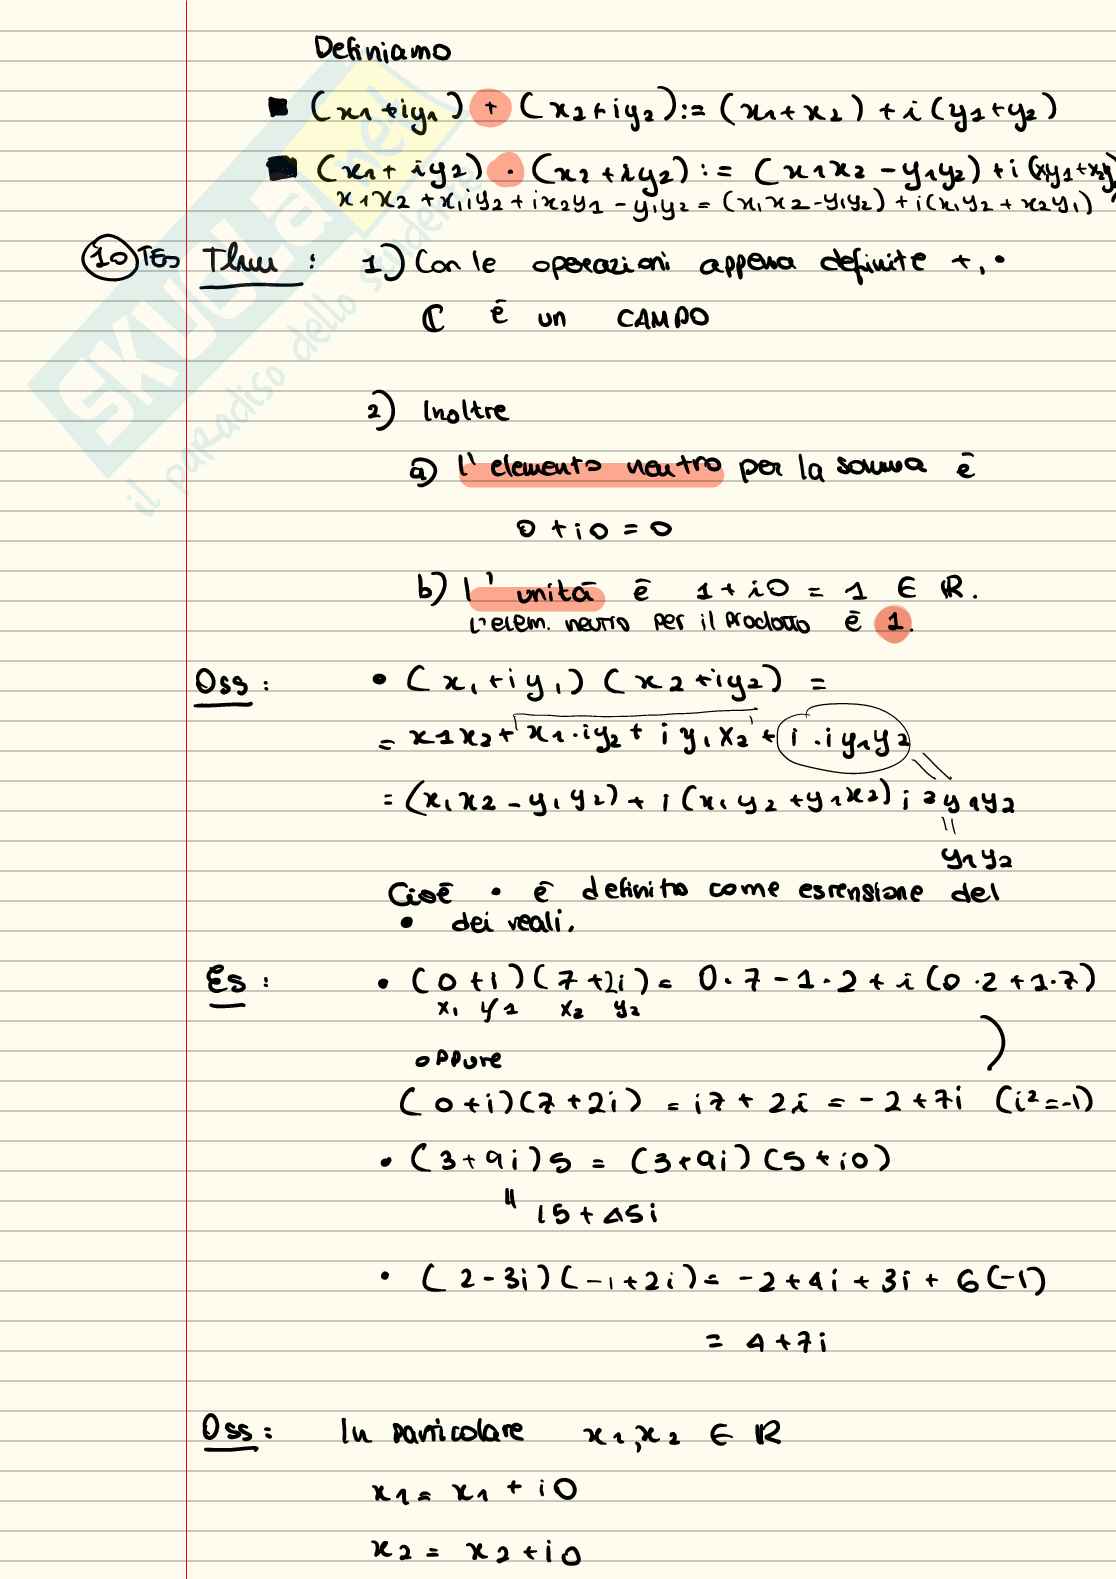 Definiamo
■ (x1+iy1) + (x2+iy2):=(x1+x2)+i(y1+y2)
■ (x1+iy2) · (x2+iy2):=(x1x2-y1y2)+i(x1y2+x2y
x1x2+x1iy2+ix2y1-y1y2=(x1x2-y1y2)+i(x1y2+x2y1)
10 TES Thm: 1) Con le operazioni appena definite +,·
ℂ ē un CAMPO
2) Inoltre
a) l'elemento neutro per la somma ē
0+i0=0
b) l'unitā ē 1+i0=1 ∈ ℝ.
l'elem. neutro per il prodotto ē 1.
Oss: • (x1+iy1)(x2+iy2)=
=x1x2+x1·iy2+iy1x2+i·iy1y2
=(x1x2-y1y2)+i(x1y2+y1x2) i²y1y2
"
y1y2
Cioē • ē definito come estensione del
• dei reali.
Es: • (0+i)(7+2i)=0·7-1·2+i(0·2+1·7)
x1 y1 x2 y2
)
oppure
(0+i)(7+2i)=i7+2i=-2+7i (i²=-1)
• (3+9i)5=(3+9i)(5+i0)
" 15+45i
• (2-3i)(-1+2i)=-2+4i+3i+6(-1)
=4+7i
Oss: In particolare x1,x2 ∈ ℝ
x1=x1+i0
x2=x2+i0
SKUOLA.net
il paradiso dello stude